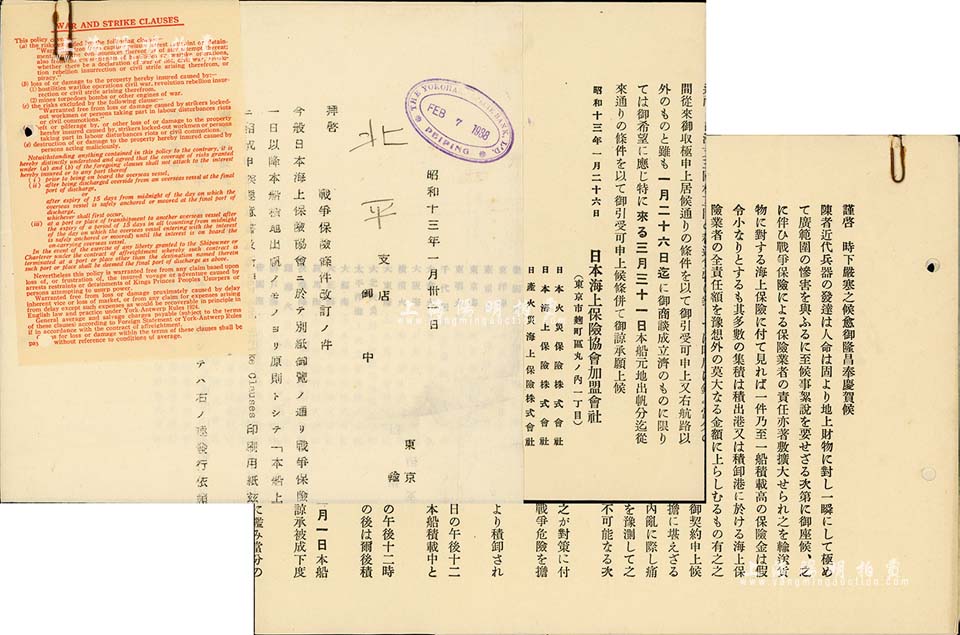 WAR AND STRIKE CLAUSES
This policy
(a) the risks excluded by the following clause:—
mention the consequences thereof or of any attempt thereat;
whether there be a declaration of war or not, civil war, revolu-
tion rebellion insurrection or civil strife arising therefrom, or
piracy."
(b) loss of or damage to the property hereby insured caused by:—
(1) hostilities warlike operations civil war, revolution rebellion insur-
rection or civil strife arising therefrom.
(2) mines torpedoes bombs or other engines of war.
(c) the risks excluded by the following clause:—
"Warranted free from loss or damage caused by strikers locked-
out workmen or persons taking part in labour disturbances riots
or civil commotions."
(d) theft or pilferage by, or other loss of or damage to the property
hereby insured caused by, strikers locked-out workmen or persons
taking part in labour disturbances riots or civil commotions.
(e) destruction of or damage to the property hereby insured caused by
persons acting maliciously.
Notwithstanding anything contained in this policy to the contrary, it is
hereby distinctly understood and agreed that the coverage of risks granted
under (a) and (b) of the foregoing clauses shall not attach to the interest
hereby insured or to any part thereof
(i) prior to being on board the oversea vessel,
(ii) after being discharged overside from an oversea vessel at the final
port of discharge,
or
after expiry of 15 days from midnight of the day on which the
oversea vessel is safely anchored or moored at the final port of
discharge,
whichever shall first occur,
(iii) at a port or place of transhipment to another oversea vessel after
the expiry of a period of 15 days in all (counting from midnight
of the day on which the oversea vessel entering with the interest
is safely anchored or moored) until the interest is on board the
on-carrying oversea vessel.
In the event of the exercise of any liberty granted to the Shipowner or
Charterer under the contract of affreightment whereby such contract is
terminated at a port or place other than the destination named therein
such port or place shall be deemed the final port of discharge as above.
Nevertheless this policy is warranted free from any claim based upon
loss of, or frustration of, the insured voyage or adventure caused by
arrests restraints or detainments of Kings Princes Peoples Usurpers or
persons attempting to usurp power.
Warranted free from loss or damage proximately caused by delay
inherent vice or loss of market, or from any claim for expenses arising
from delay except such expenses as would be recoverable in principle in
English law and practice under York-Antwerp Rules 1924.
General average and salvage charges payable (subject to the terms
of these clauses) according to Foreign Statement or York-Antwerp Rules
if in accordance with the contract of affreightment.
Claims for loss or damage within the terms of these clauses shall be
without reference to conditions of average.
THE YOKOHAMA SPECIE BANK, LTD.
FEB 7 1938
PEIPING
間從來御取極申上居候通りの條件を以て御引受可申上又右航路以
外のものと雖も一月二十六日迄に御商談成立濟のものに限り
ては御希望に應じ特に來る三月三十一日本船元地出帆分迄從
來通りの條件を以て御引受可申上候條併て御諒承願上候
昭和十三年一月二十六日
日本海上保險協會加盟會社
(東京市麴町區丸ノ内一丁目)
日本火災保險株式會社
日本海上保險株式會社
日產火災海上保險株式會社
昭和十三年一月卅日
東京
北平
支店御中
戰爭保險條件改訂ノ件
拜啓
今般日本海上保險協會ニ於テ別紙御覽ノ通リ戰爭保險
一日以降本船積地出帆ノモノヨリ原則トシテ「本船上
Clauses 印刷用紙茲
謹啓 時下嚴寒之候愈御隆昌奉慶賀候
陳者近代兵器の發達は人命は固より地上財物に對し一瞬にして極め
て廣範圍の慘害を與ふるに至候事絮說を要せざる次第に御座候、之
に伴ひ戰爭保險による保險業者の責任亦著敷擴大せられ之を輸送貨
物に對する海上保險に付て見れば一件乃至一船積載高の保險金は假
令小なりとするも其多數の集積は積出港又は積卸港に於ける海上保
險業者の全責任額を豫想外の莫大なる金額に上らしむるもの有之之
御契約申上候
擔に堪えざる
內亂に際し痛
を豫測して之
不可能なる次
之が對策に付
戰爭危險を擔
より積卸され
日の午後十二
本船積載中と
の午後十二時
の後は爾後積
月一日本船
諒承被成下度
に鑑み當分の